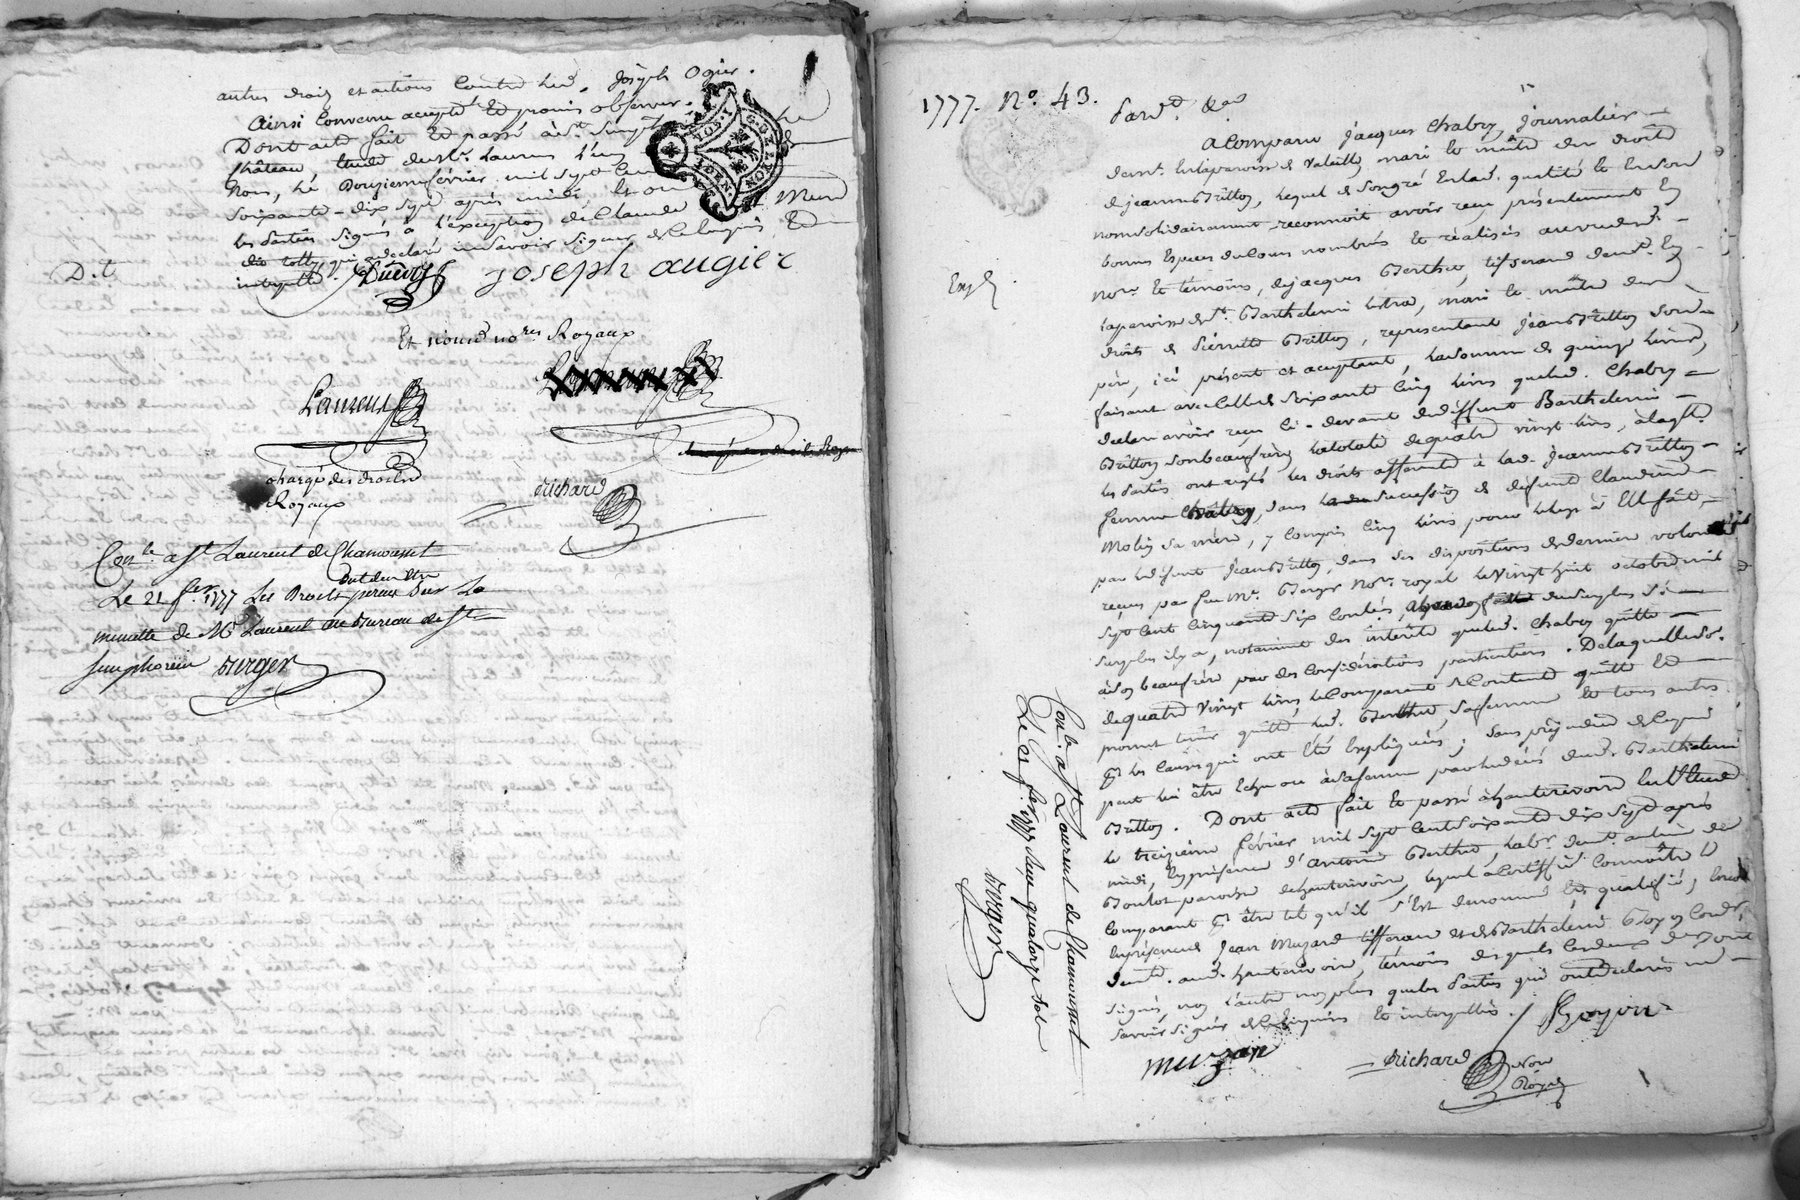 autres droits et actions contre led. Joseph Ogier.
Ainsi convenu accepté et promis observer.
Dont acte fait et passé à St. Simph
château étude de Me. Laurens l'un
nous, le douzieme février mil sept cen
soixante-dix sept après midi, et on
les parties signés à l'exception de Claude
qui a déclaré ne savoir signer de ce enquis et
interpellé.
D.t
Joseph augier
Et nous d. nores. Royaux
Laurens
chargé des droits
Royaux
Richard
Conle. a St Laurent de Chamousset
Le 21 fer. 1777 Les Droits perçus sur la
minutte de Me Laurent au Bureau de St
Simphorien Burger
1777. No. 43.
Pard. &a
A Comparu Jacques Chabry, journalier
demt. en la paroisse de Valeille, mari et maitre des droits
de jeanne Brillon, lequel de son gré en lad. qualité et en son
nom solidairement reconnoit avoir reçu présentement en
bonnes especes du cours nombrés et réalisés au vu dud.
nore. et témoins, de jacques Berthet, tisserand demt. en
la paroisse de St. Barthelemi Lestra, mari et maitre des
droits de Pierrette Brillon, representant Jean Brillon son
père, ici présent et acceptant, la somme de quinze livres,
faisant avec celle de soixante cinq livres que led. Chabry
declare avoir reçu ci-devant de deffunt Barthelemi
Brillon son beaufrère, la totalité de quatre vingt livres, à laqlle.
les parties ont reglé les droits afferants à lad. Jeanne Brillon
femme Chabry, dans la succession de defunte Claudine
Molin sa mère, y compris cinq livres pour le legs à elle fait
par led. defunt Jean Brillon, dans ses dispositions de derniere volonté
reçues par feu Me. Berger nore. royal le vingt huit octobre mil
sept cent cinquante six
surplus il y a, notamment des interets que led. Chabry quitte
à son beaufrère par des considérations particulieres. De laquelle so.
de quatre vingt livres, le comparant se contente quitte et
promet tenir quitte led. Berthet, sa femme et tous autres
pr. les causes qui ont été expliquées; sans préjudice de ce qui
peut lui être echu ou à sa femme par le décès dud. Barthelemi
Brillon. Dont acte fait et passé à hauterivoire en l'étude
le treizieme février mil sept cent soixante dix sept après
midi, en présence d'antoine Berthet, labr. demt. au lieu de
Boulot paroisse de hauterivoire, lequel a certiffié connoitre le
comparant pr. être tel qu'il s'est denommé et qualifié; encore
en présence Jean Muzard tisserand et de Barthelemi Boyon Cordr.
demt. aud. hauterivoire, témoins desquels les deux der. ont
signés, non l'autre non plus que les parties qui ont declarés ne
savoir signer de ce enquis et interpellés.
Boyon
muzan
Richard
Nore
Royal
Conle. a St Laurent de Chamousset
Le 21 fer. 1777 Reçu quatorze sols
Burger